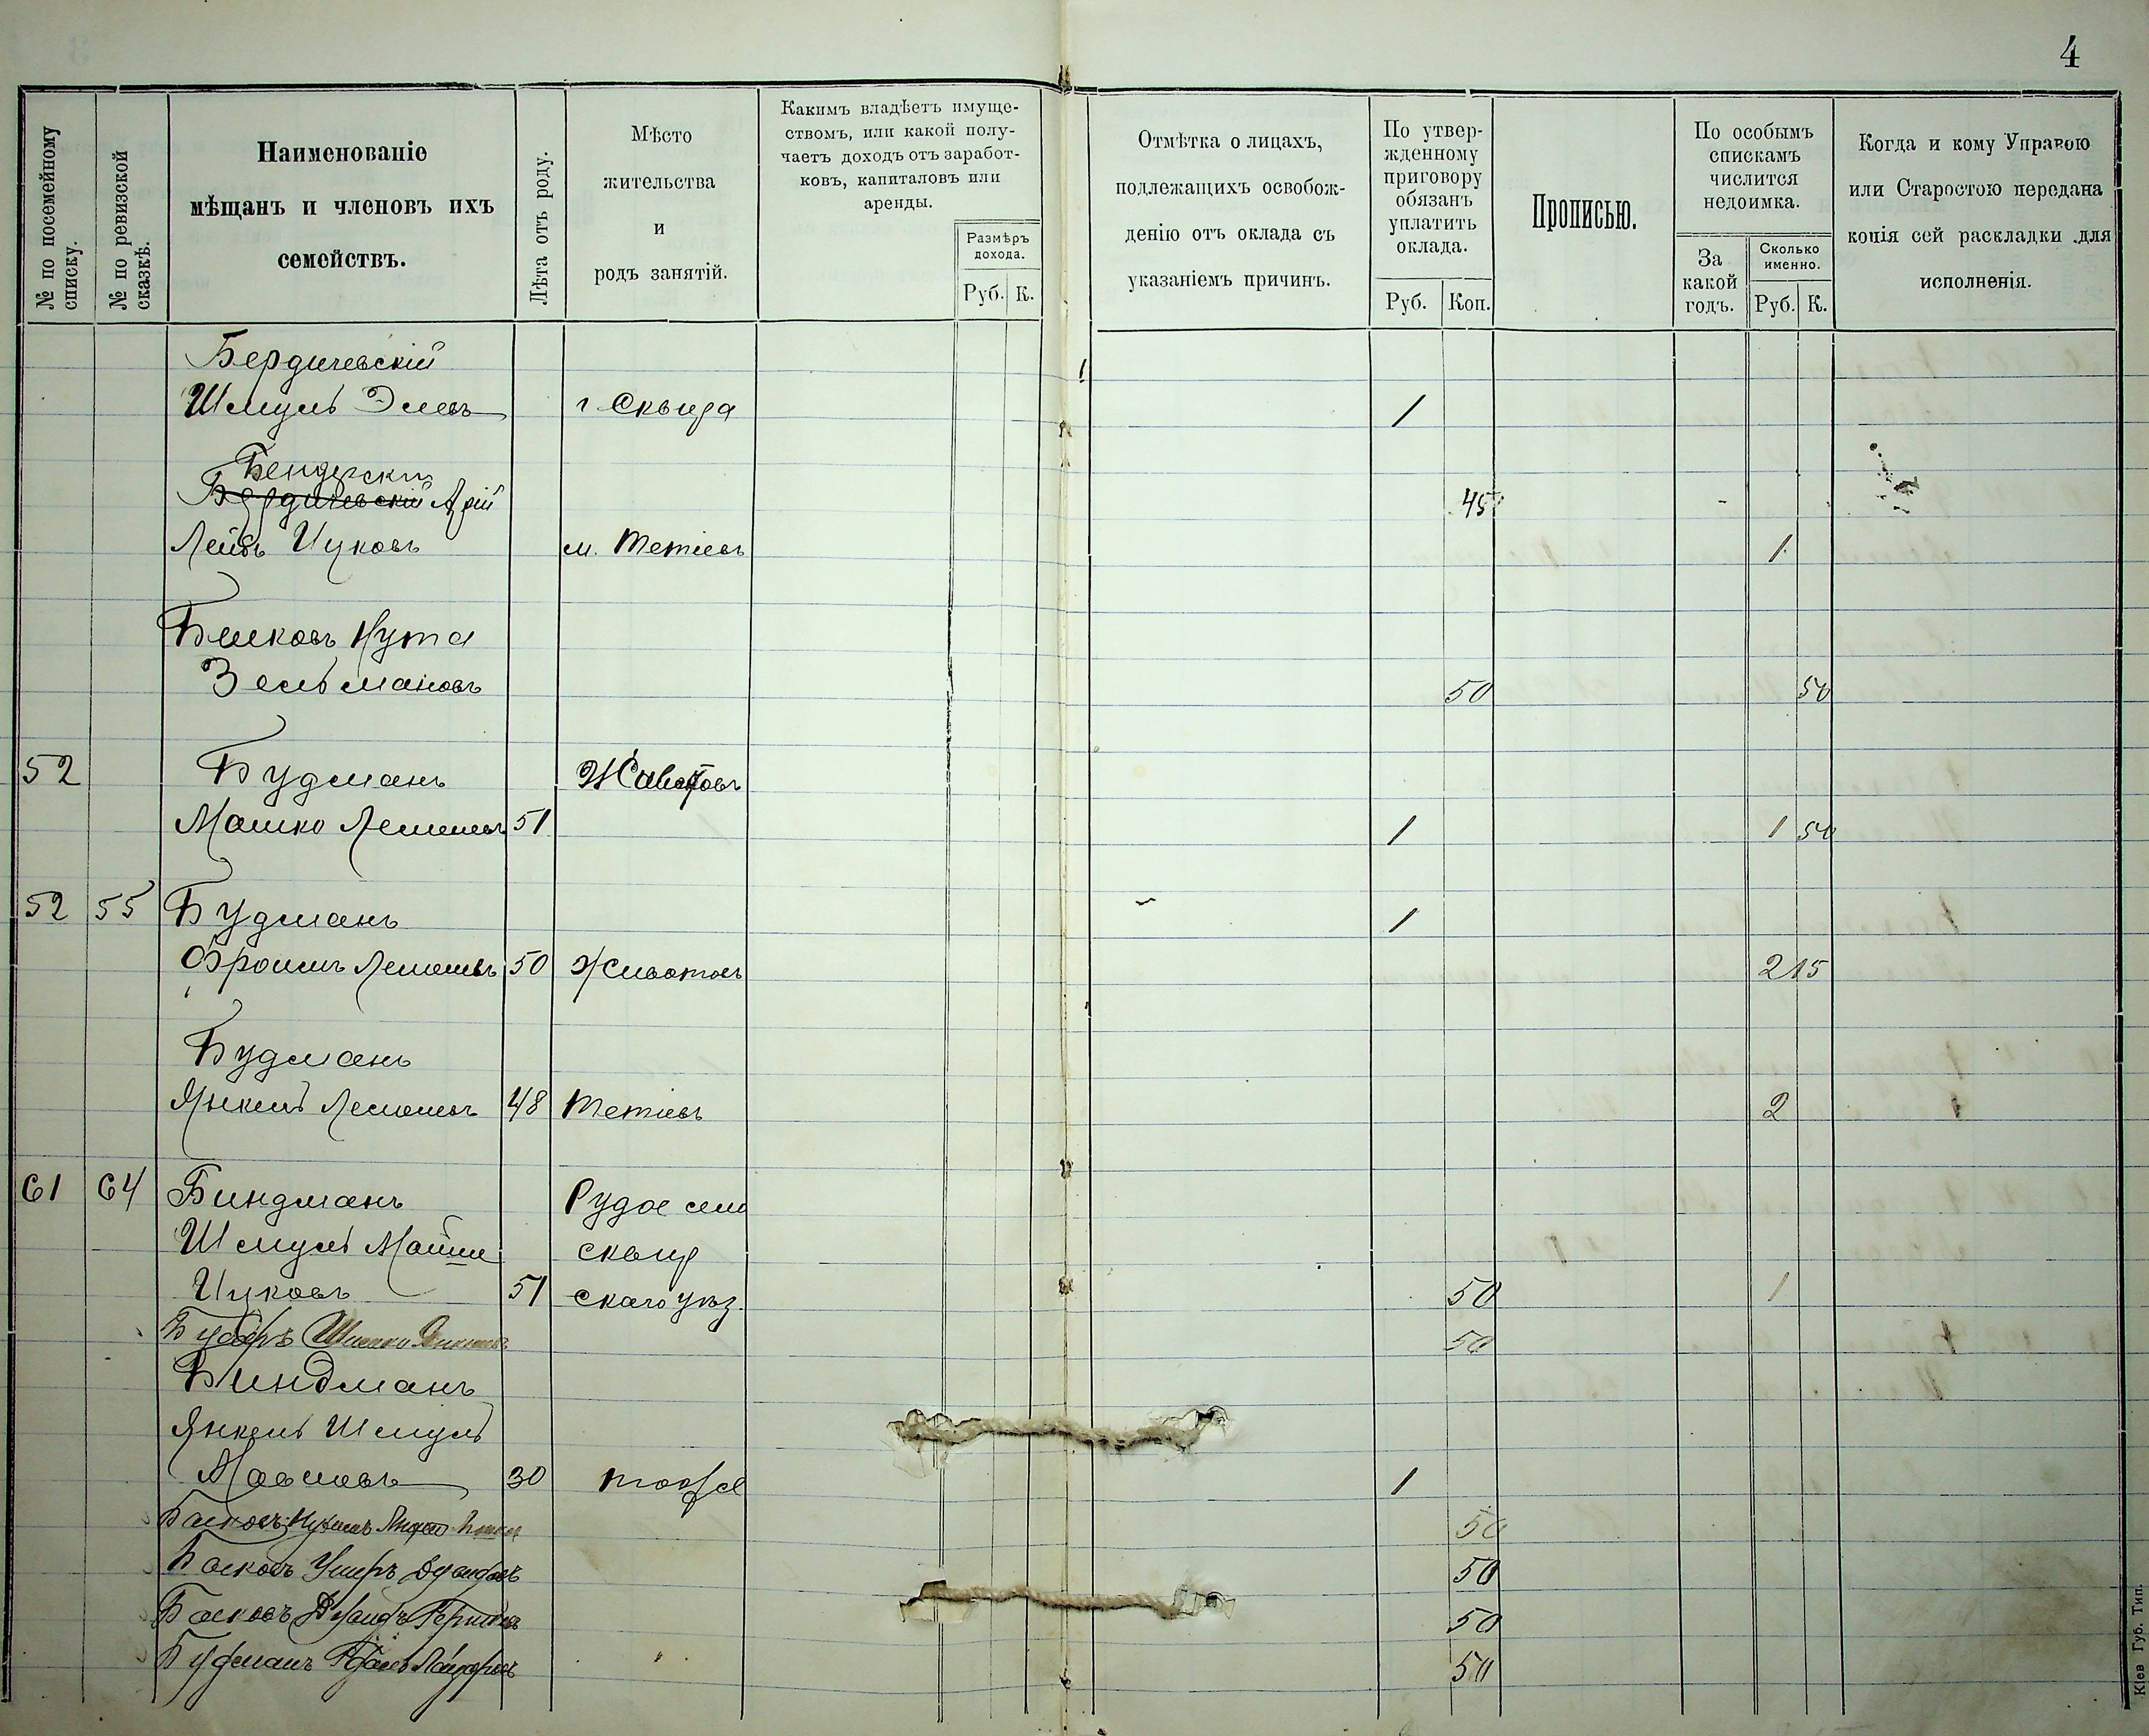 4
№ по посемейному списку.
№ по ревизской сказкѣ.
Наименованіе
мѣщанъ и членовъ ихъ
семействъ.
Лѣта отъ роду.
Мѣсто
жительства
и
родъ занятій.
Какимъ владѣетъ имуще-
ствомъ, или какой полу-
чаетъ доходъ отъ заработ-
ковъ, капиталовъ или
аренды.
Размѣръ
дохода.
Руб. К.
Отмѣтка о лицахъ,
подлежащихъ освобож-
денію отъ оклада съ
указаніемъ причинъ.
По утвер-
жденному
приговору
обязанъ
уплатить
оклада.
Руб. Коп.
Прописью.
По особымъ
спискамъ
числится
недоимка.
За
какой
годъ.
Сколько
именно.
Руб. К.
Когда и кому Управою
или Старостою передана
копія сей раскладки для
исполненія.
Бердичевскій
Шмуль г Сквира 1
Бендерскій
Бердичевскій Арій 45
Лейбъ Ицковъ м. Тетіевъ 1
Нута
Зельмановъ 50 50
52 Будманъ Животовъ
Мошко 51 1 1 50
52 55 Будманъ 1
Фроимъ 50 Животовъ 2 15
Будманъ
Янкель 48 Тетіевъ 2
61 64 Биндманъ Рудое село
Шмуль Мойше сквир
Ицковъ 51 скаго уѣз. 50 1
50
Биндманъ
Янкель Шмуль
Мовшовъ 30 тоже 1
50
Басковъ Ушеръ 50
Басковъ 50
Будманъ 50
Кіев Губ. Тип.